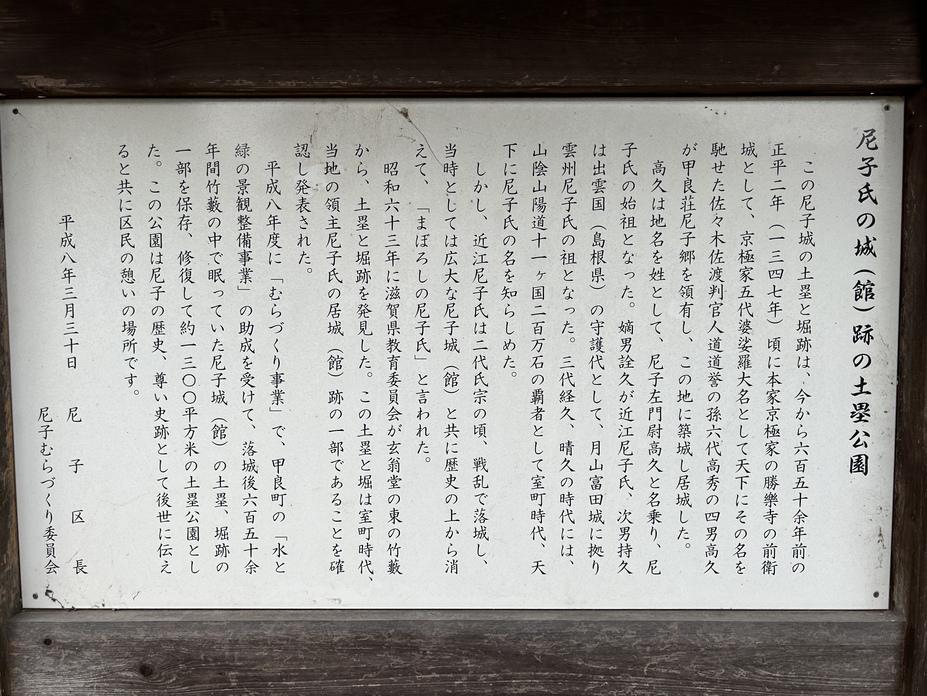 尼子氏の城（館）跡の土塁公園
この尼子城の土塁と堀跡は、今から六百五十余年前の
正平二年（一三四七年）頃に本家京極家の勝樂寺の前衛
城として、京極家五代婆娑羅大名として天下にその名を
馳せた佐々木佐渡判官入道道誉の孫六代高秀の四男高久
が甲良荘尼子郷を領有し、この地に築城し居城した。
高久は地名を姓として、尼子左門尉高久と名乗り、尼
子氏の始祖となった。嫡男詮久が近江尼子氏、次男持久
は出雲国（島根県）の守護代として、月山富田城に拠り
雲州尼子氏の祖となった。三代経久、晴久の時代には、
山陰山陽道十一ヶ国二百万石の覇者として室町時代、天
下に尼子氏の名を知らしめた。
しかし、近江尼子氏は二代氏宗の頃、戦乱で落城し、
当時としては広大な尼子城（館）と共に歴史の上から消
えて、「まぼろしの尼子氏」と言われた。
昭和六十三年に滋賀県教育委員会が玄翁堂の東の竹藪
から、土塁と堀跡を発見した。この土塁と堀は室町時代、
当地の領主尼子氏の居城（館）跡の一部であることを確
認し発表された。
平成八年度に「むらづくり事業」で、甲良町の「水と
緑の景観整備事業」の助成を受けて、落城後六百五十余
年間竹藪の中で眠っていた尼子城（館）の土塁、堀跡の
一部を保存、修復して約一三〇〇平方米の土塁公園とし
た。この公園は尼子の歴史、尊い史跡として後世に伝え
ると共に区民の憩いの場所です。
平成八年三月三十日
尼子区長
尼子むらづくり委員会